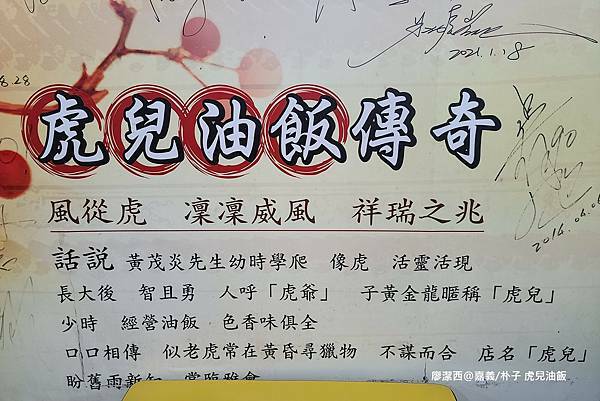 2021.1.8
8.28
虎兒油飯傳奇
2016.06.0
風從虎 凜凜威風 祥瑞之兆
話説 黃茂炎先生幼時學爬 像虎 活靈活現
長大後 智且勇 人呼「虎爺」 子黃金龍暱稱「虎兒」
少時 經營油飯 色香味俱全
口口相傳 似老虎常在黃昏尋獵物 不謀而合 店名「虎兒」
廖潔西@嘉義/朴子 虎兒油飯
盼舊雨新知 常臨雅會